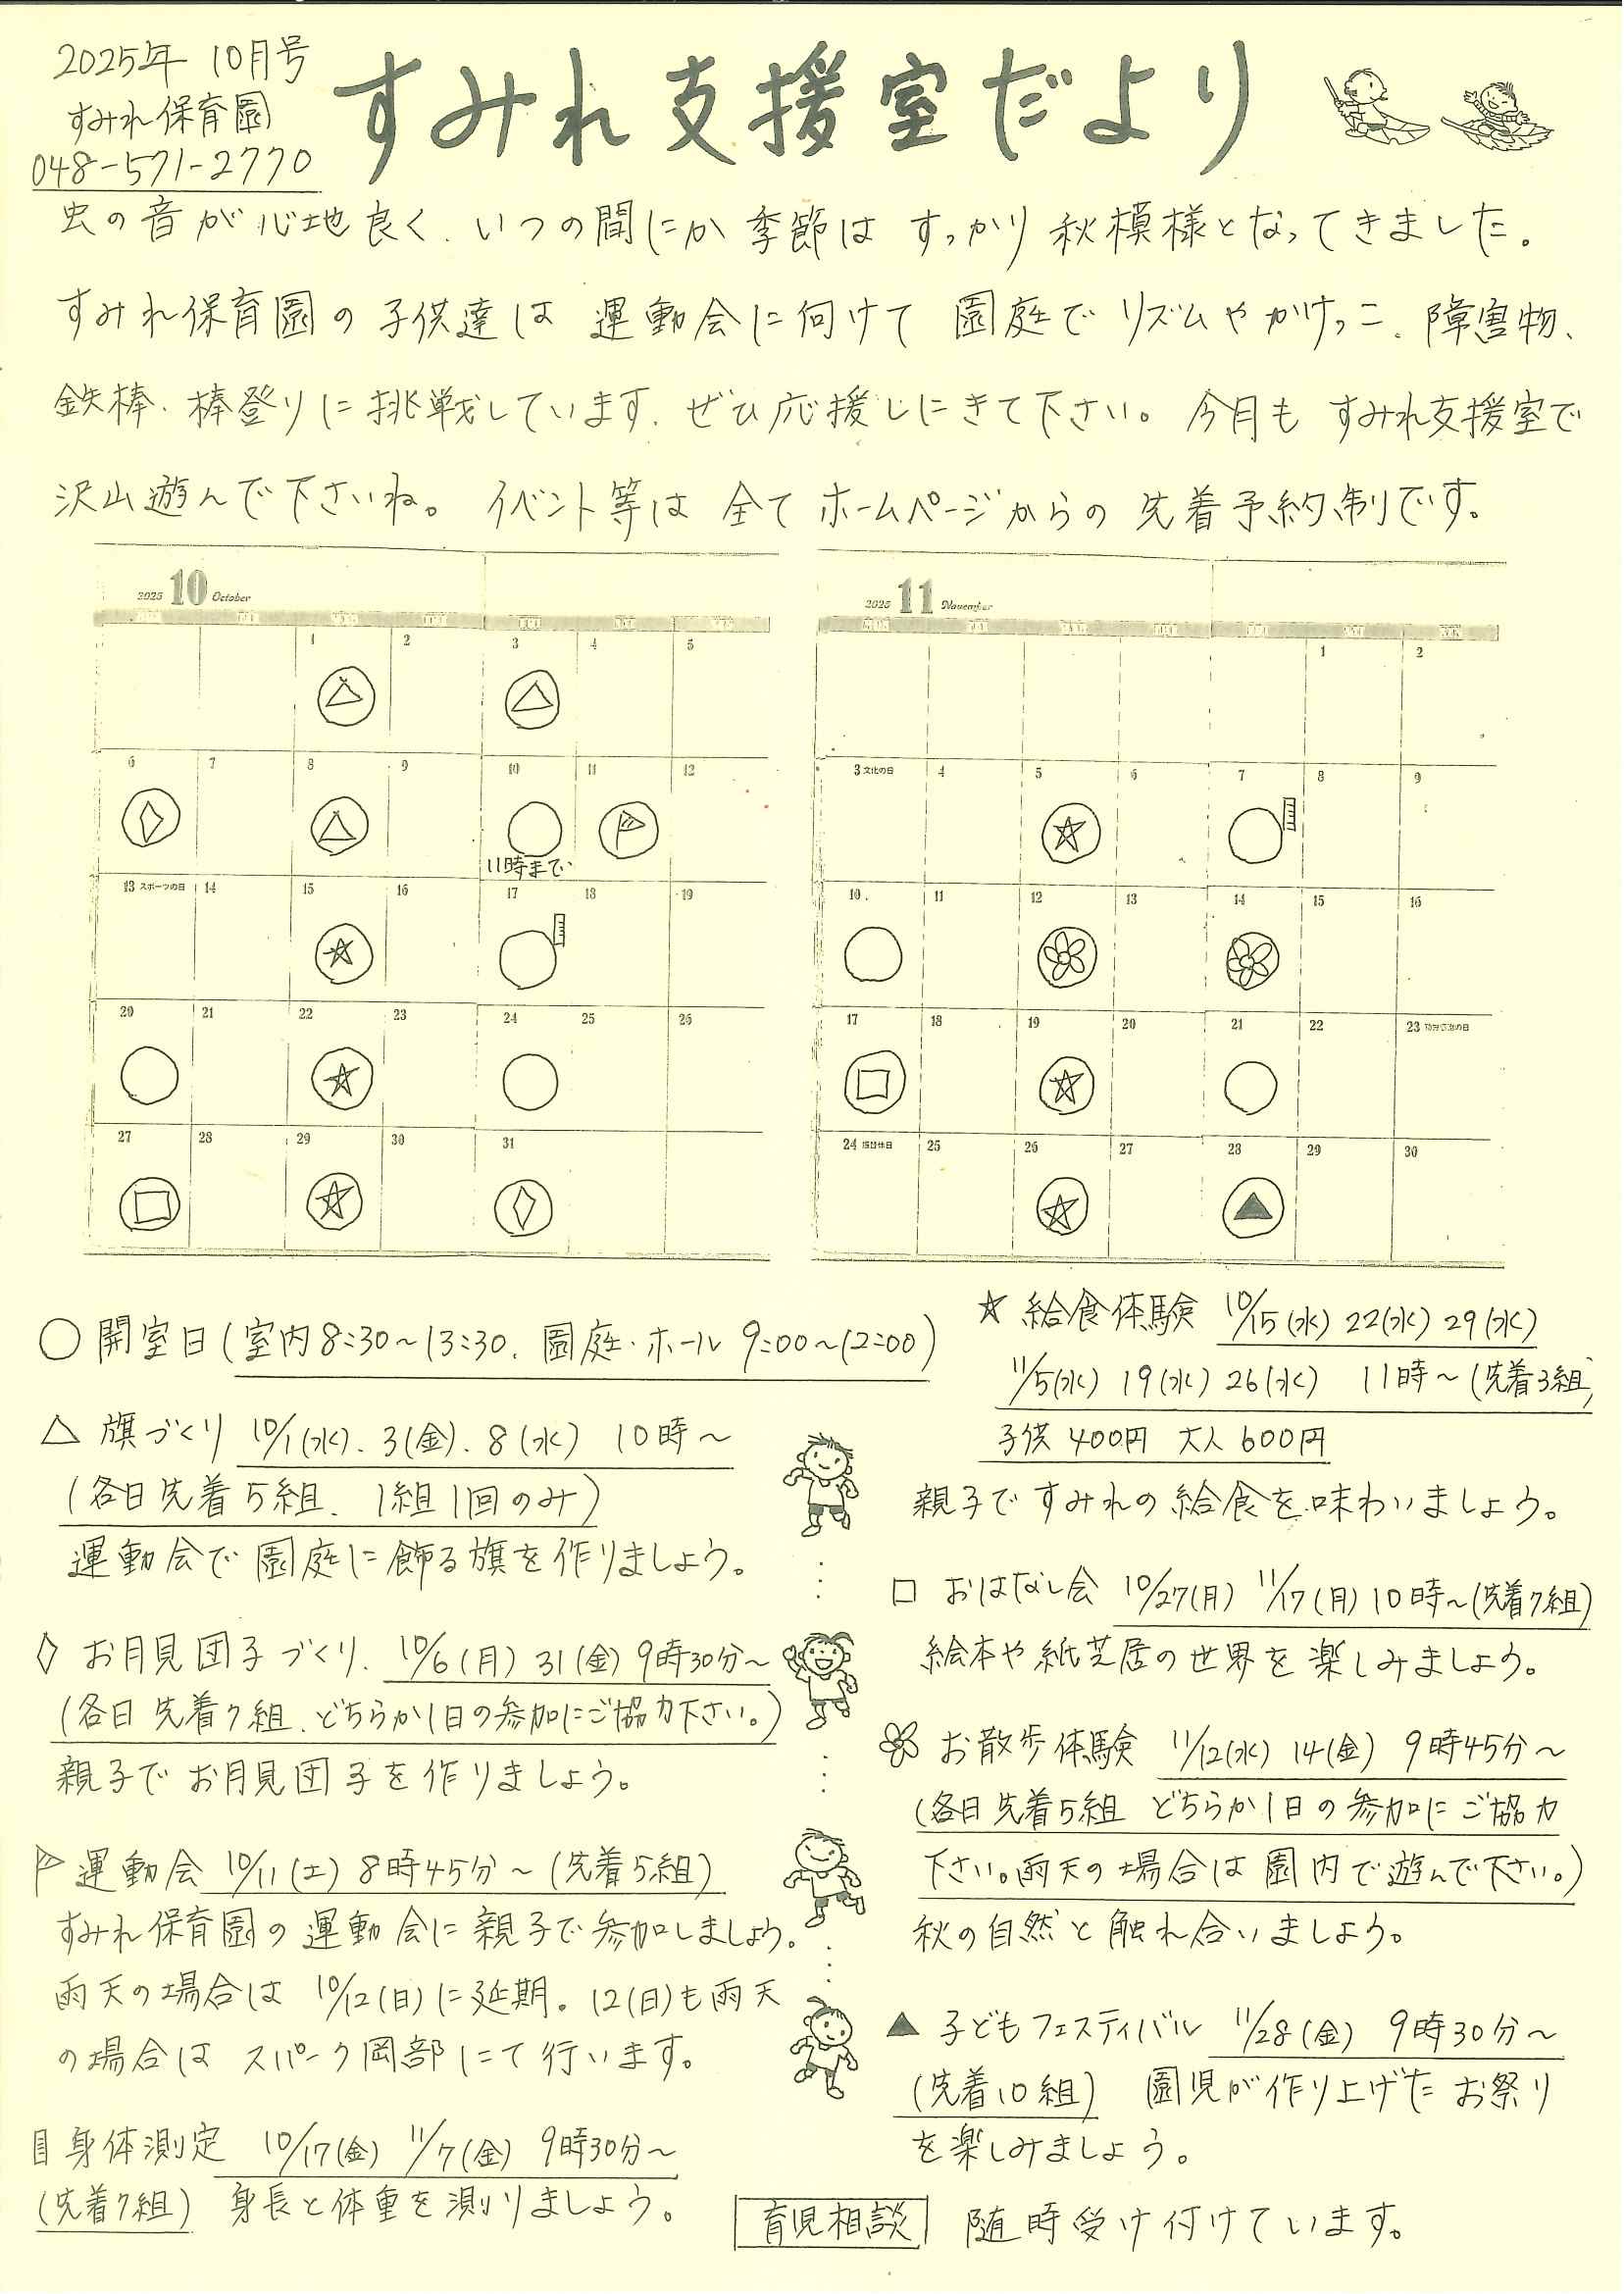 2025年 10月号
すみれ保育園
048-571-2770
すみれ支援室だより
虫の音が心地良く、いつの間にか季節は すっかり秋模様となってきました。
すみれ保育園の子供達は 運動会に向けて 園庭で リズムや かけっこ、障害物、
鉄棒、棒登りに挑戦しています。ぜひ応援しにきて下さい。今月も すみれ支援室で
沢山遊んで下さいね。 イベント等は 全て ホームページからの 先着予約制です。
2025 10 October
1 2 3 4 5
6 7 8 9 10 11 12
11時まで
13 スポーツの日 14 15 16 17 18 19
20 21 22 23 24 25 26
27 28 29 30 31
2025 11 November
1 2
3 文化の日 4 5 6 7 8 9
10 11 12 13 14 15 16
17 18 19 20 21 22 23 勤労感謝の日
24 振替休日 25 26 27 28 29 30
○ 開室日(室内8:30~13:30、園庭・ホール 9:00~12:00)
△ 旗づくり 10/1(水)、3(金)、8(水) 10時~
(各日先着5組、1組1回のみ)
運動会で園庭に飾る旗を作りましょう。
◇ お月見団子づくり、10/6(月) 31(金) 9時30分~
(各日 先着7組、どちらか1日の参加にご協力下さい。)
親子でお月見団子を作りましょう。
運動会 10/11(土) 8時45分~(先着5組)
すみれ保育園の運動会に親子で参加しましょう。
雨天の場合は 10/12(日)に延期。12(日)も雨天
の場合は スパーク岡部にて行います。
身体測定 10/17(金) 11/7(金) 9時30分~
(先着7組) 身長と体重を測りましょう。
☆ 給食体験 10/15(水) 22(水) 29(水)
11/5(水) 19(水) 26(水) 11時~(先着3組)
子供400円 大人600円
親子ですみれの給食を味わいましょう。
□ おはなし会 10/27(月) 11/17(月) 10時~(先着7組)
絵本や紙芝居の世界を楽しみましょう。
お散歩体験 11/12(水) 14(金) 9時45分~
(各日先着5組 どちらか1日の参加にご協力
下さい。雨天の場合は園内で遊んで下さい。)
秋の自然と触れ合いましょう。
▲ 子どもフェスティバル 11/28(金) 9時30分~
(先着10組) 園児が作り上げたお祭り
を楽しみましょう。
育児相談 随時受け付けています。